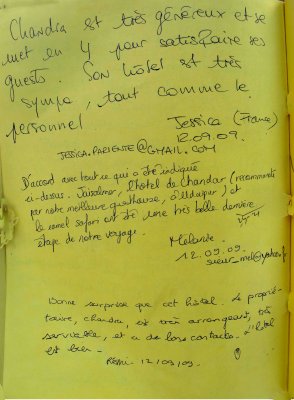 Chandra est très généreux et se
met en 4 pour satisfaire ses
guests. Son hôtel est très
sympa, tout comme le
personnel
Jessica (France)
12.09.09.
JESSICA.PARIENTE@GMAIL.COM
D'accord avec tout ce qui a été indiqué
ci-dessus. Jaisalmer, l'hôtel de Chandar (recommandé
par notre meilleure guesthouse, à Udaipur) et
le camel safari ont été une très belle dernière
étape de notre voyage.
Mélanie
12.09.09.
Bonne surprise que cet hôtel. Le proprié-
taire, chandra, est très arrangeant, très
serviable, et a de bons contacts. L'hôtel
est bien.
Rémi - 12/09/09.